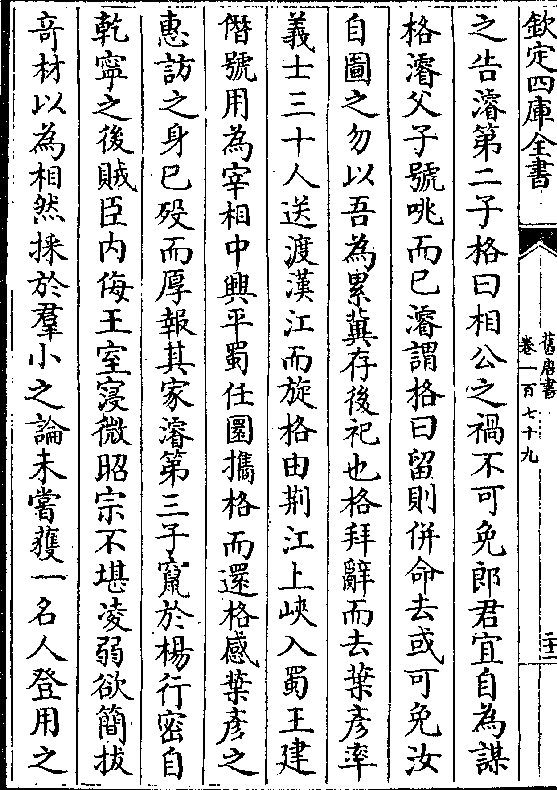 欽定四庫全書
舊唐書
卷一百七十九
二十二
之告濬第二子格曰相公之禍不可免郎君宜自為謀
格濬父子號咷而已濬謂格曰留則併命去或可免汝
自圖之勿以吾為累冀存後祀也格拜辭而去葉彦率
義士三十人送渡漢江而旋格由荆江上峽入蜀王建
僭號用為宰相中興平蜀任圜攜格而還格感葉彦之
惠訪之身已歿而厚報其家濬第三子竄於楊行密自
乾寧之後賊臣内侮王室寖微昭宗不堪凌弱欲簡拔
竒材以為相然採於羣小之論未嘗獲一名人登用之